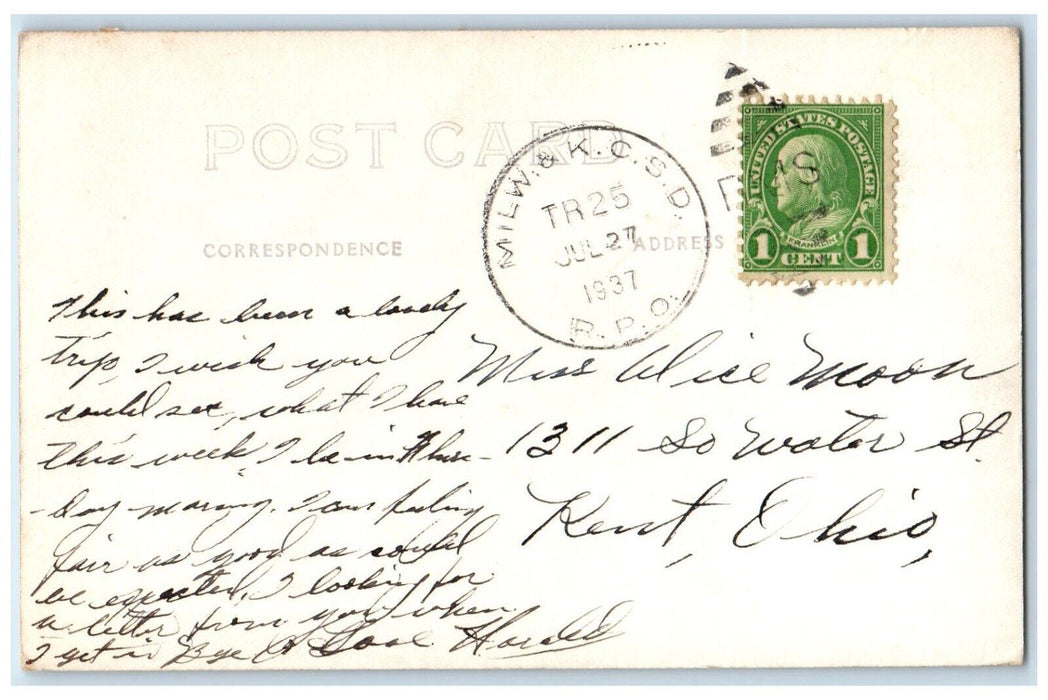 POST CARD
CORRESPONDENCE
ADDRESS
MILW. & K.C.S.D.
TR 25
JUL 27
1937
R.P.O.
UNITED STATES POSTAGE
FRANKLIN
1 CENT 1
This has been a lovely
trip, I wish you
could see, what I have
this week. I be in Thurs-
-day morning. I am feeling
fair as good as could
be expected, I looking for
a letter from you when
I get in Bye Love Harold
Miss Alice Moon
1311 So Water St.
Kent, Ohio,